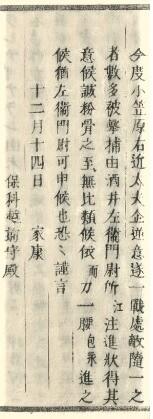 今度小笠原右近太夫企逆意遂一戰處敵隨一之
者數多被擊捕由酒井左衞門尉所江注進狀得其
意候誠粉骨之至無比類候依而刀一腰包永進之
候猶左衞門尉可申候也恐々謹言
十二月十四日　家康
保科越前守殿